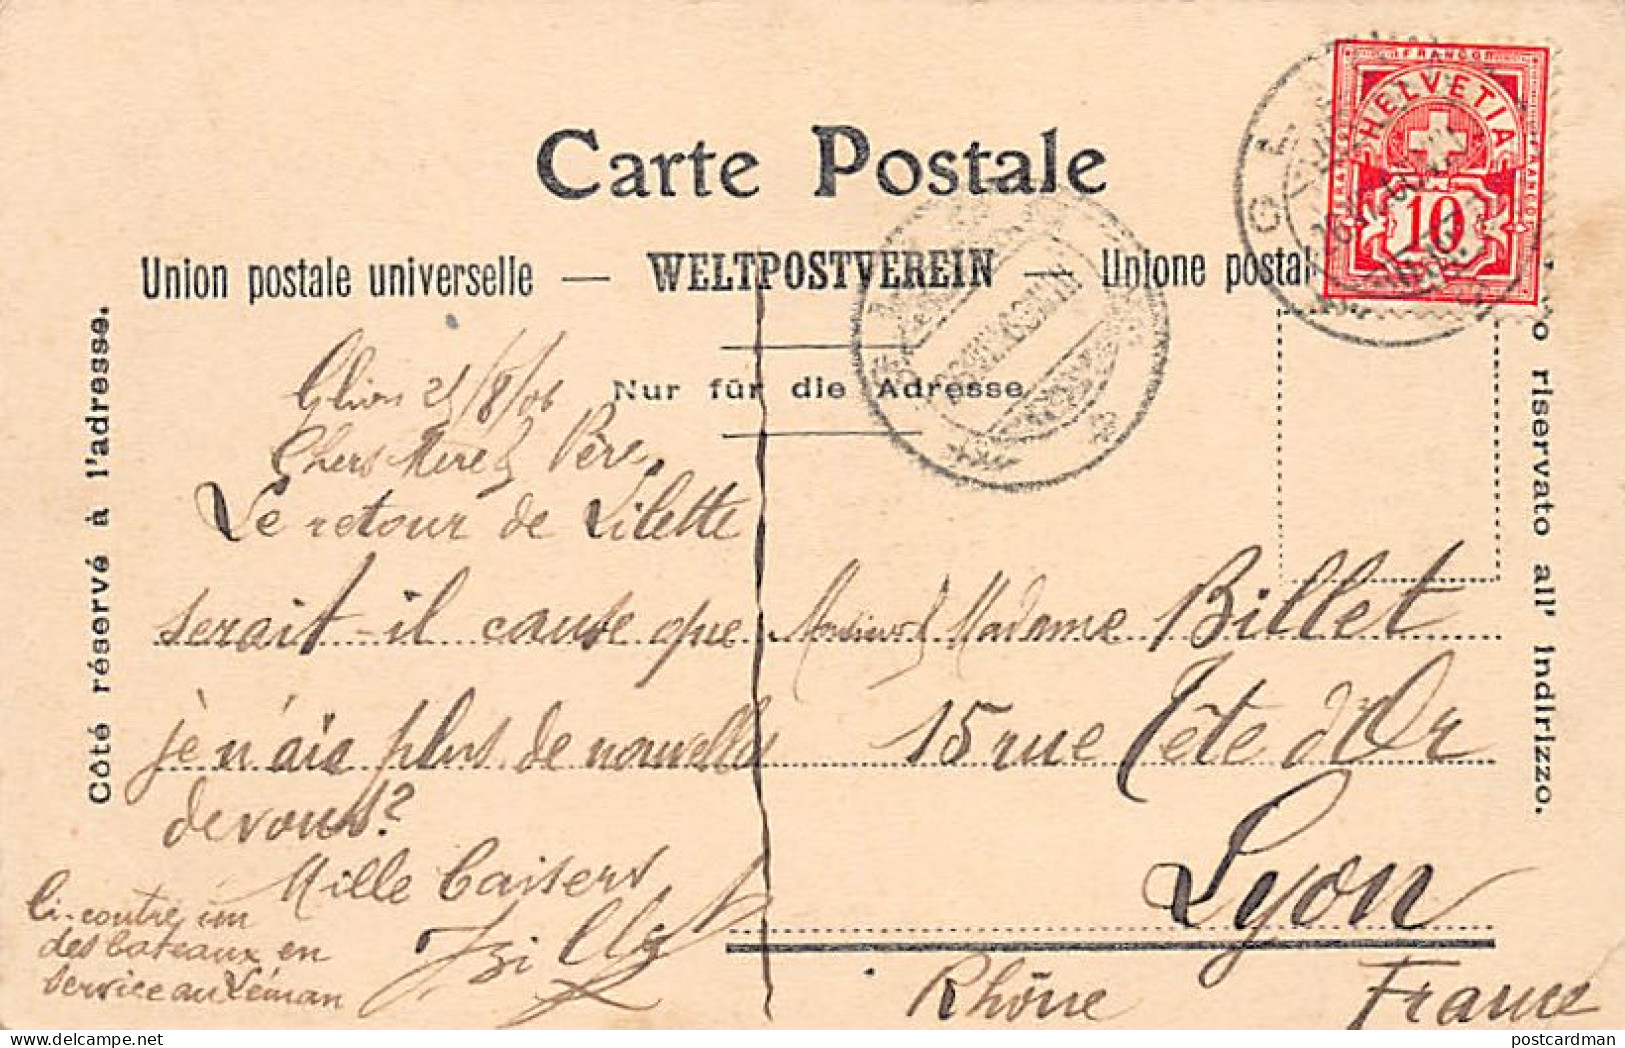 Carte Postale
Union postale universelle — WELTPOSTVEREIN — Unione postal
Nur für die Adresse
Côté réservé à l'adresse.
riservato all' indirizzo.
FRANCO
HELVETIA
FRANCO
10
Glion 25/8/06
Chers Mère & Père,
Le retour de Lilette
serait-il cause que
je n'aie plus de nouvelles
de vous?
Mille baisers
Ci-contre, un
des bateaux en
service au Léman
Monsieur & Madame Billet
15 rue Tête d'Or
Lyon
Rhône France
postcardman